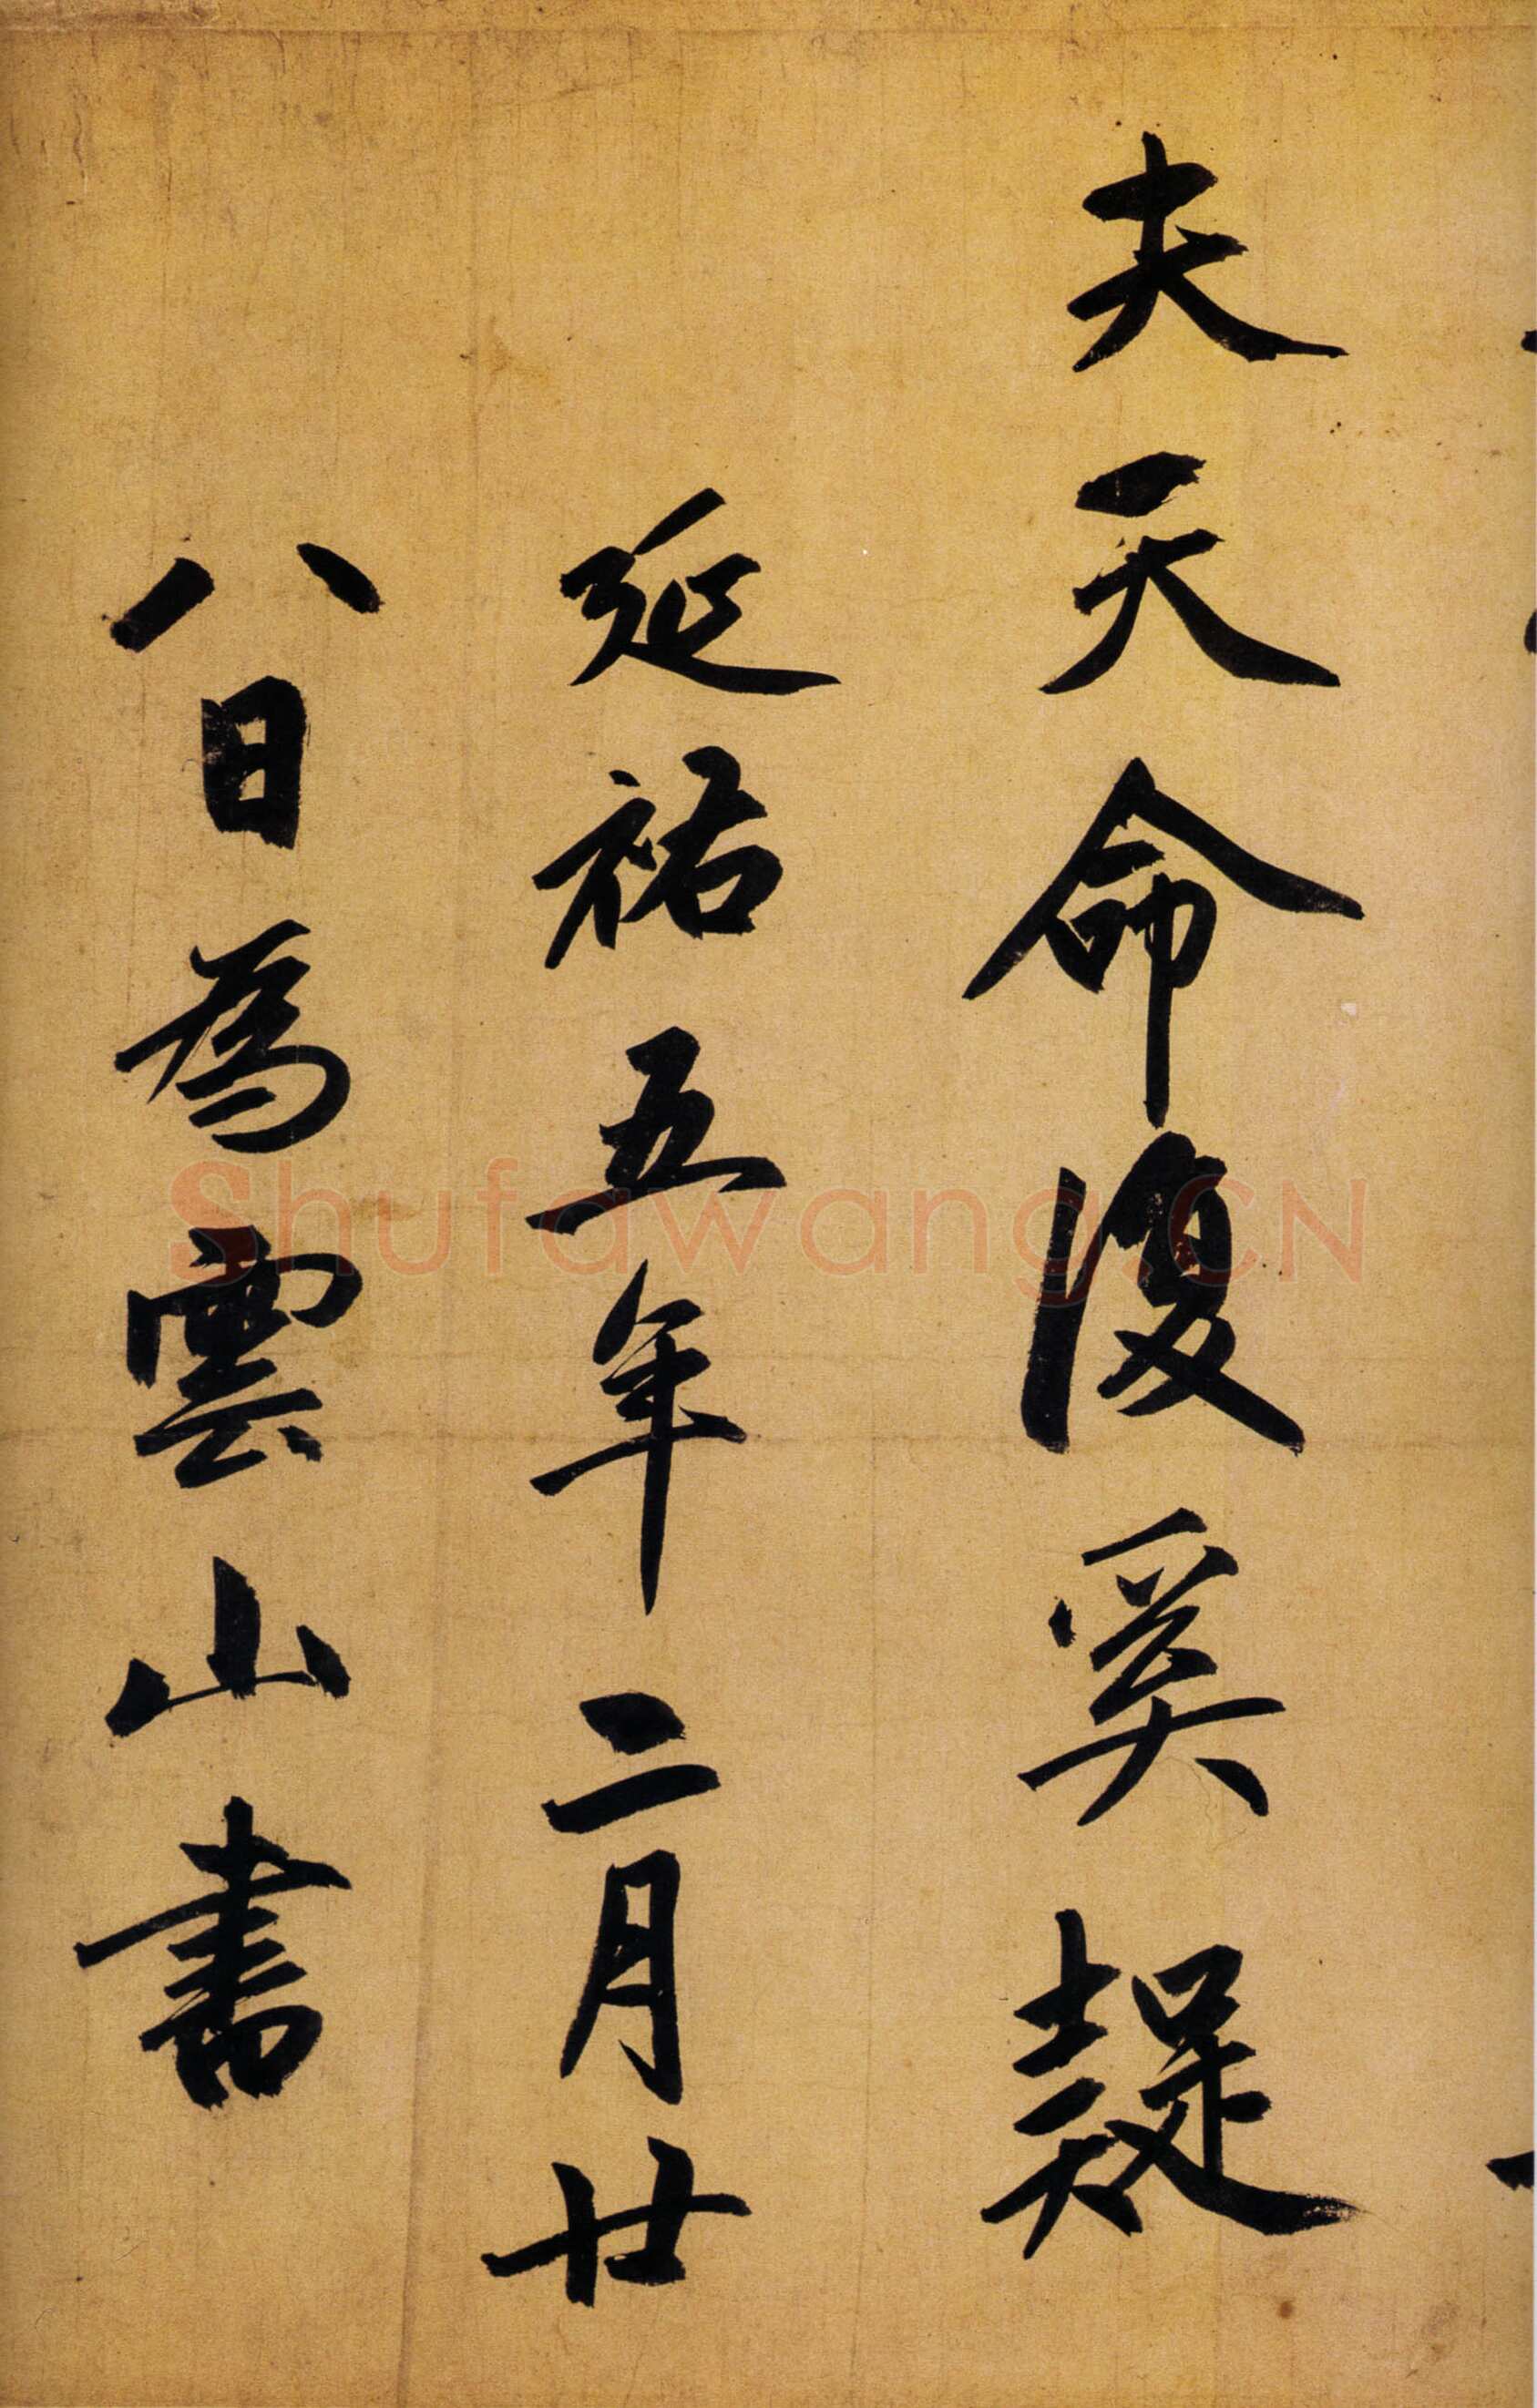 夫天命復奚疑
延祐五年二月廿
八日為雲山書
Shufawang.CN